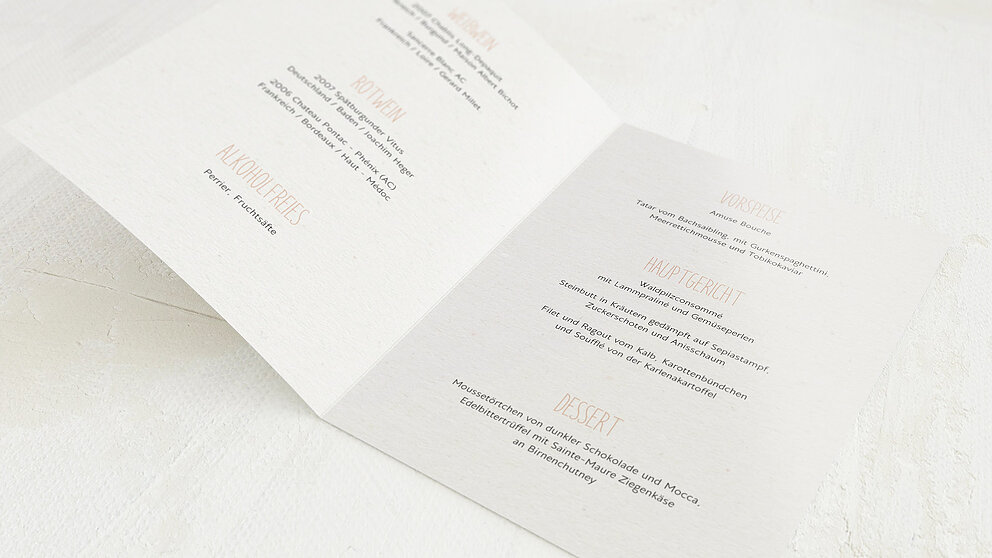 WEIßWEIN
2007 Chablis Long-Depaquit
/ Burgund / Maison Albert Bichot
Sancerre Blanc AC
Frankreich / Loire / Gerard Millet
ROTWEIN
2007 Spätburgunder Vitus
Deutschland / Baden / Joachim Heger
2006 Chateau Pontac - Phénix (AC)
Frankreich / Bordeaux / Haut - Médoc
ALKOHOLFREIES
Perrier, Fruchtsäfte
VORSPEISE
Amuse Bouche
Tatar vom Bachsaibling, mit Gurkenspaghettini,
Meerrettichmousse und Tobikokaviar
HAUPTGERICHT
Waldpilzconsommé
mit Lammpraliné und Gemüseperlen
Steinbutt in Kräutern gedämpft auf Sepiastampf,
Zuckerschoten und Anisschaum
Filet und Ragout vom Kalb, Karottenbündchen
und Soufflé von der Karlenakartoffel
DESSERT
Moussetörtchen von dunkler Schokolade und Mocca,
Edelbittertrüffel mit Sainte-Maure Ziegenkäse
an Birnenchutney